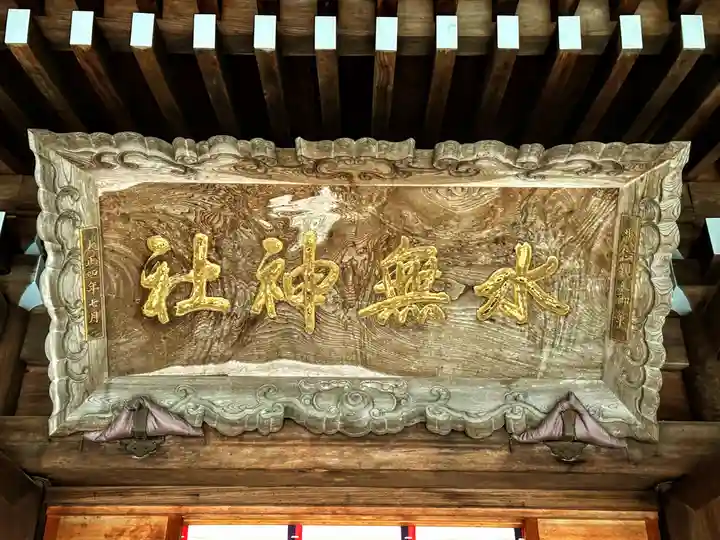 水無神社
大正四年七月